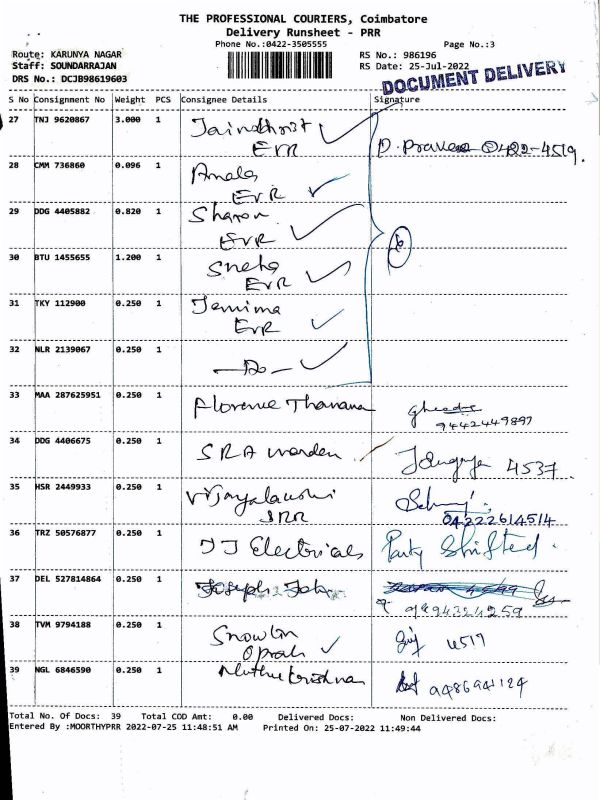 THE PROFESSIONAL COURIERS, Coimbatore
Delivery Runsheet - PRR
Phone No.:0422-3505555
Page No.:3
Route: KARUNYA NAGAR
RS No.: 986196
Staff: SOUNDARRAJAN
RS Date: 25-Jul-2022
DRS No.: DCJB98619603
DOCUMENT DELIVERY
S No Consignment No Weight PCS Consignee Details Signature
27 TNJ 9620867 3.000 1
EVR
28 CMM 736860 0.096 1
EVR
29 DDG 4405882 0.820 1 Sharon
EVR
6
30 BTU 1455655 1.200 1 Sneha
EVR
31 TKY 112900 0.250 1 Jemima
EVR
32 NLR 2139067 0.250 1 —Do—
33 MAA 287625951 0.250 1 Florence
9442449897
34 DDG 4406675 0.250 1 SRA warden
4537
35 HSR 2449933 0.250 1 Vijayalakshmi
04222614514
36 TRZ 50576877 0.250 1 JJ Electricals Party Shifted.
37 DEL 527814864 0.250 1 Joseph
9994324259
38 TVM 9794188 0.250 1
4517
39 NGL 6846590 0.250 1 Muthukrishnan
9486941124
Total No. Of Docs: 39 Total COD Amt: 0.00 Delivered Docs: Non Delivered Docs:
Entered By :MOORTHYPRR 2022-07-25 11:48:51 AM Printed On: 25-07-2022 11:49:44